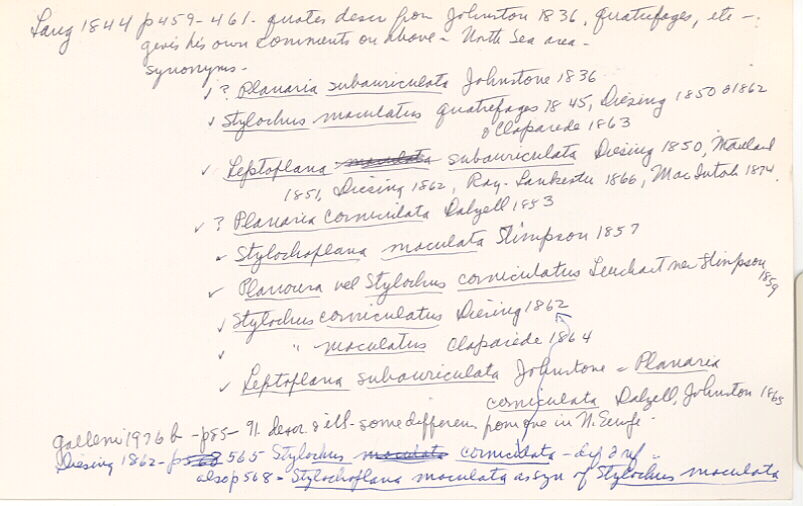 Lang 1844 p459-461. quotes descr from Johnston 1836, quatrefages, etc -
gives his own comments on above - North Sea area -
synonyms -
✓ ? Planaria subauriculata Johnstone 1836
✓ Stylochus maculatus quatrefages 1845, Diesing 1850 & 1862
& Claparede 1863
✓ Leptoplana subauriculata Diesing 1850, Maitland
1851, Diesing 1862, Ray-Lankester 1866, MacIntosh 1874.
✓ ? Planaria corniculata Dalyell 1853
✓ Stylochoplana maculata Stimpson 1857
✓ Planoura vel Stylochus corniculatus Leuckart Stimpson 1859
✓ Stylochus corniculatus Diesing 1862
✓ " maculatus Claparède 1864
✓ Leptoplana subauriculata Johnstone = Planaria
corniculata Dalyell, Johnston 1865
galleni 1976 b - p85-91. descr & ill - some differences from one in N.
Diesing 1862 - p 565 - Stylochus corniculata -
also p568 - Stylochoplana maculata as syn of Stylochus maculata